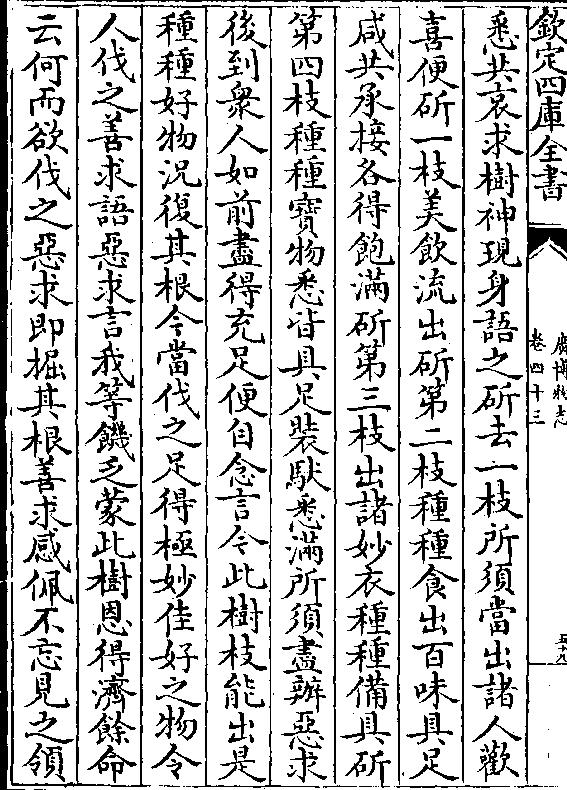 欽定四庫全書
廣博物志
卷四十三
悉共哀求樹神現身語之斫去一枝所須當出諸人歡
喜便斫一枝美飲流出斫第二枝種種食出百味具足
咸共承接各得飽滿斫第三枝出諸妙衣種種備具斫
第四枝種種寶物悉皆具足裝馱悉滿所須盡辦惡求
後到衆人如前盡得充足便自念言今此樹枝能出是
種種好物況復其根今當伐之足得極妙佳好之物令
人伐之善求語惡求言我等饑乏蒙此樹恩得濟餘命
云何而欲伐之惡求即掘其根善求感佩不忘見之領